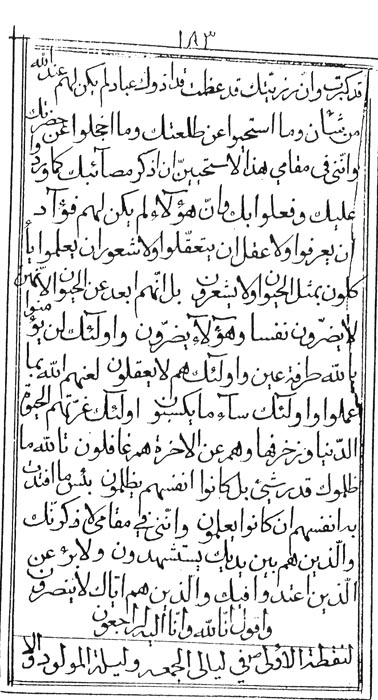 ١٨٣
قد كبرت وانّ رزيتك قد عظمت قد اذوك عباد لم يكن لهم عند الله
من شأن وما استحيوا عن طلعتك وما اخجلوا عن حضرتك
وانّني في مقامي هذا لاستحيينّ ان اذكر مصائبك كما ورد
عليك وفعلوا بك وانّ هؤلاء لم يكن لهم فؤاد
ان يعرفوا ولا عقل ان يتعقّلوا ولا شعور ان يعلموا يأ
كلون بمثل الحيوان ولا يشعرون بل انّهم ابعد عن الحيوان لانّهنّ
لا يضرّون نفسا وهؤلاء يضرّون واولئك لن يؤمنوا
بالله طرفة عين واولئك هم لا يعقلون لعنهم الله بما
عملوا واولئك سآء ما يكسبون اولئك غرّتهم الحيوة
الدّنيا وزخرفها وهم عن الاخرة هم غافلون تالله ما
ظلموك قدر شئ بل كانوا انفسهم يظلمون بئس ما افتدت
به انفسهم ان كانوا يعلمون وانّني في مقامي لاذكرنّك
والّذين هم بين يديك يستشهدون ولابرّء عن
الّذين اعتدوا فيك والّذين هم ايّاك لا ينصرون
واقول انّا لله وانّا اليه راجعون
لنقطة الاولى في ليالي الجمعه وليلة المولود والا